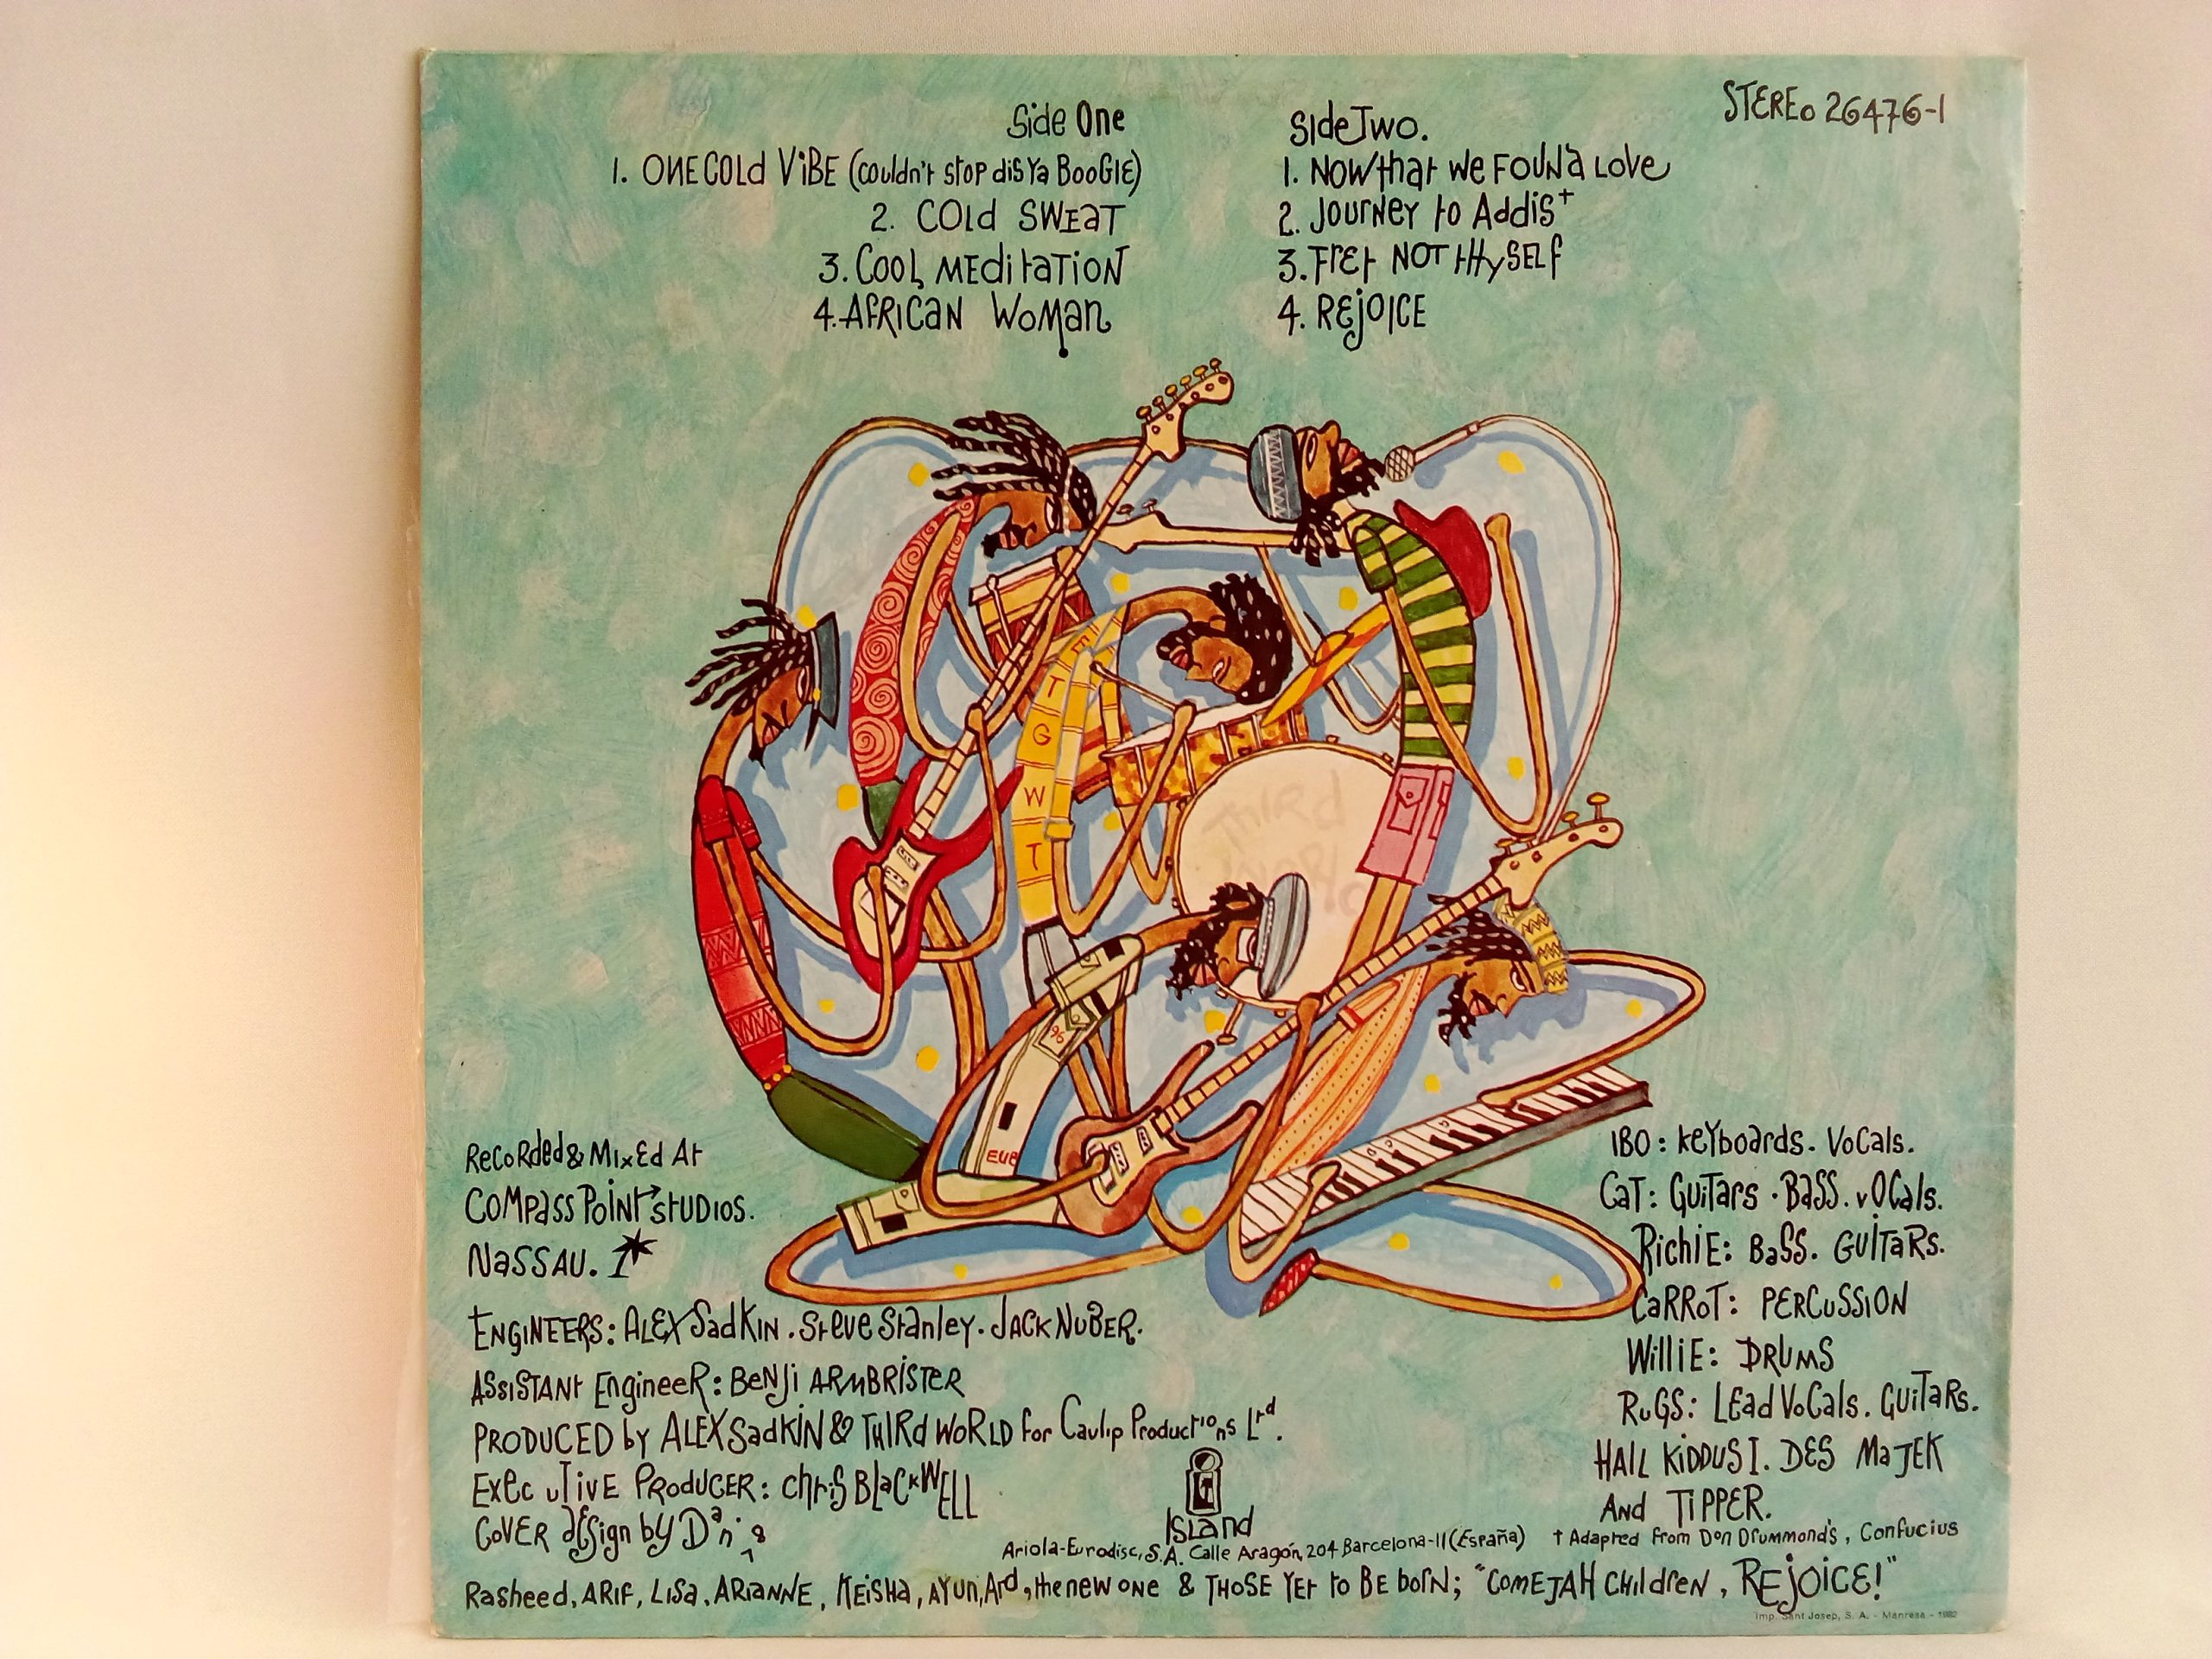 STEREO 26476-1
Side One
1. ONE COLD VIBE (Couldn't stop dis Ya BOOGIE)
2. COLD SWEAT
3. COOL MEDITATION
4. AFRICAN WOMAN
Side Two.
1. NOW that We FOUND LOVE
2. JOURNEY to Addis†
3. FRET NOT tHySELF
4. REJOICE
E
T
G
W
W
T
THIRD
WORLD
96
EUB
Recorded & Mixed At
COMPASS POINT STUDIOS.
NASSAU.
ENGINEERS: ALEX Sadkin. Steve Stanley. JACK NUBER.
ASSISTANT Engineer: BENJI ARMBRISTER
PRODUCED by ALEX SadKIN & THIRD WORLD for Caulip Productions Ltd.
EXECUTIVE PRODUCER: Chris BLACKWELL
COVER design by Dan'8
IBO: keyboards. Vocals.
CaT: Guitars. Bass. vocals.
RichiE: Bass. GUITaRs.
CaRRoT: PERCUSSION
WilliE: DRUMS
RuGS: LEad Vocals. GUiTaRs.
HAIL KIDDUS I. DES MaJEK
And TIPPER.
Island
Ariola-Eurodisc, S.A. Calle Aragón, 204 Barcelona-11 (España)
† Adapted from Don Drummond's, Confucius
Rasheed, ARIF, LISa, ARIANNE, KEisha, AYun, Ard, the new one & THOSE YEt to BE born; "COME JAH CHildren, REJOICE!"
Imp. Sant Josep, S. A. - Manresa - 1982